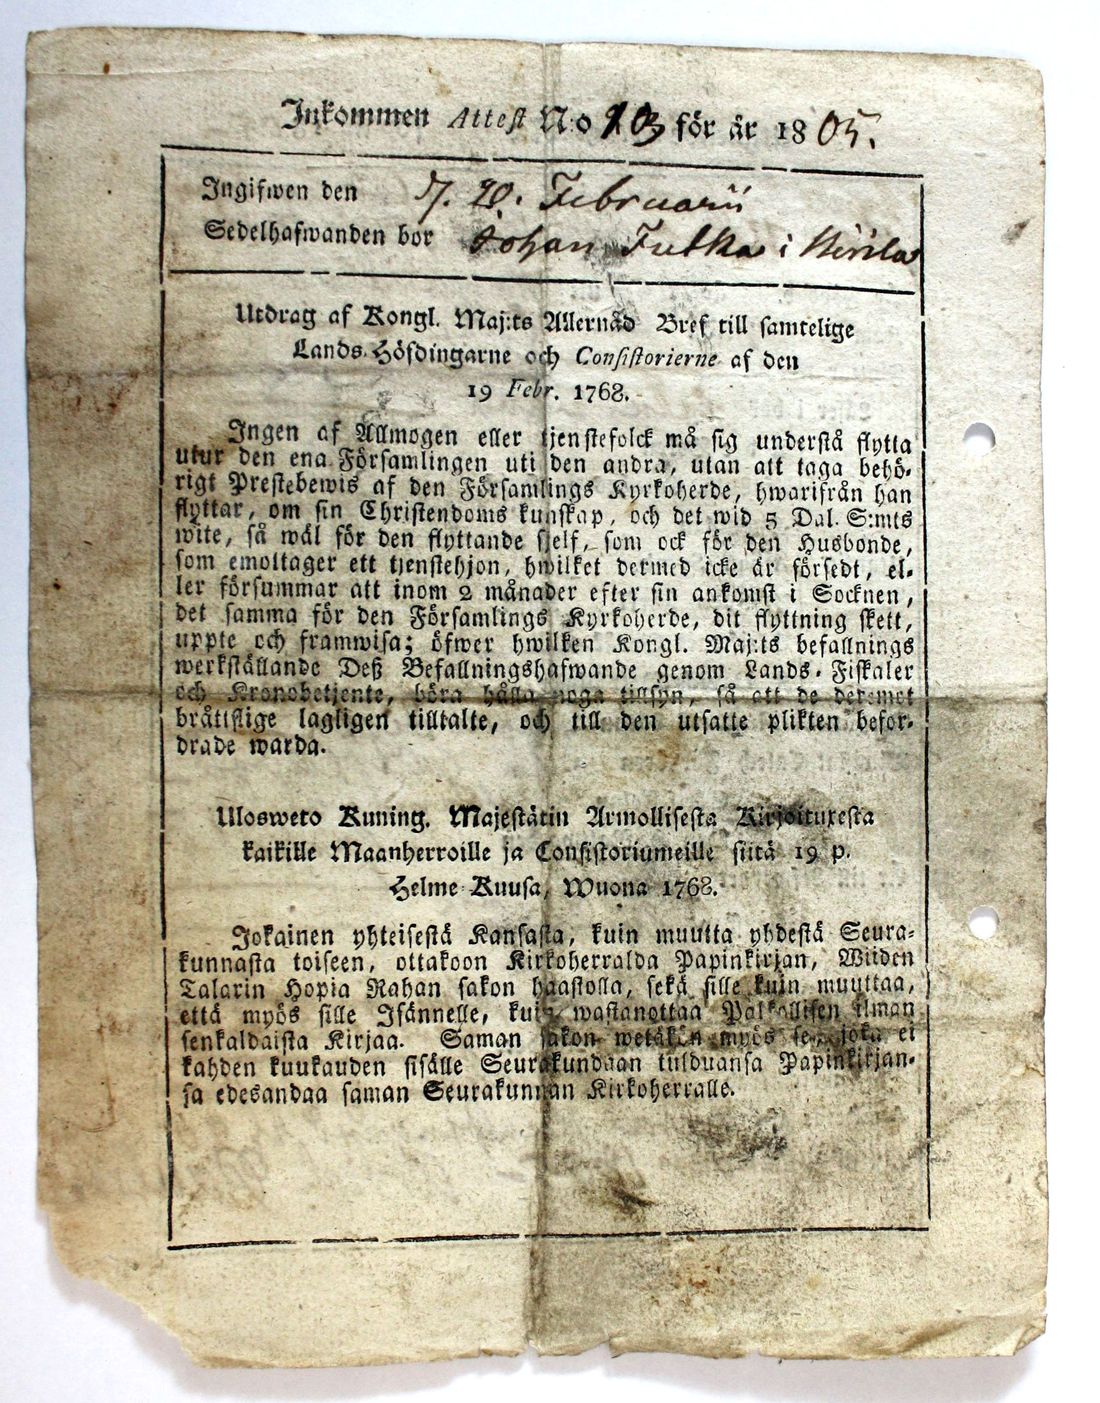 Inkommen Attest N:o för år 1805.
Ingifwen den 20. Februarii
Sedelhafwanden bor Johan i
Utdrag af Kongl. Maj:ts Allernåd Bref till samtelige
Lands-Höfdingarne och Consistorierne af den
19 Febr. 1768.
Ingen af Allmogen eller tjenstefolck må sig understå flytta
utur den ena Församlingen uti den andra, utan att taga behö-
rigt Prestebewis af den Församlings Kyrkoherde, hwarifrån han
flyttar, om sin Christendoms kunskap, och det wid 5 Dal. S:mts
wite, så wäl för den flyttande sjelf, som ock för den Husbonde,
som emottager ett tjenstehjon, hwilket dermed icke är försedt, el-
ler försummar att inom 2 månader efter sin ankomst i Socknen,
det samma för den Församlings Kyrkoherde, dit flyttning skett,
uppte och framwisa; öfwer hwilken Kongl. Maj:ts befallnings
werkställande Deß Befallningshafwande genom Lands-Fiskaler
och Kronobetjente, böra hålla noga tillsyn, så att de deremot
bråttslige lagligen tilltalte, och till den utsatte plikten befor-
drade warda.
Ulosweto Kuning. Majestätin Armollisesta Kirjoituxesta
kaikille Maanherroille ja Consistoriumeille siitä 19 p.
Helme-Kuusa, Wuona 1768.
Jokainen yhteisestä Kansasta, kuin muutta yhdestä Seura-
kunnasta toiseen, ottakoon Kirkoherralda Papinkirjan, Wiiden
Talarin Hopia Rahan sakon haastolla, sekä sille kuin muuttaa,
että myös sille Isännelle, kuin wastanottaa Palkollisen ilman
senkaldaista Kirjaa. Saman sakon wetäkön myös se, joka ei
kahden kuukauden sisälle Seurakundaan tulduansa Papinkirjan-
sa edesandaa saman Seurakunnan Kirkoherralle.